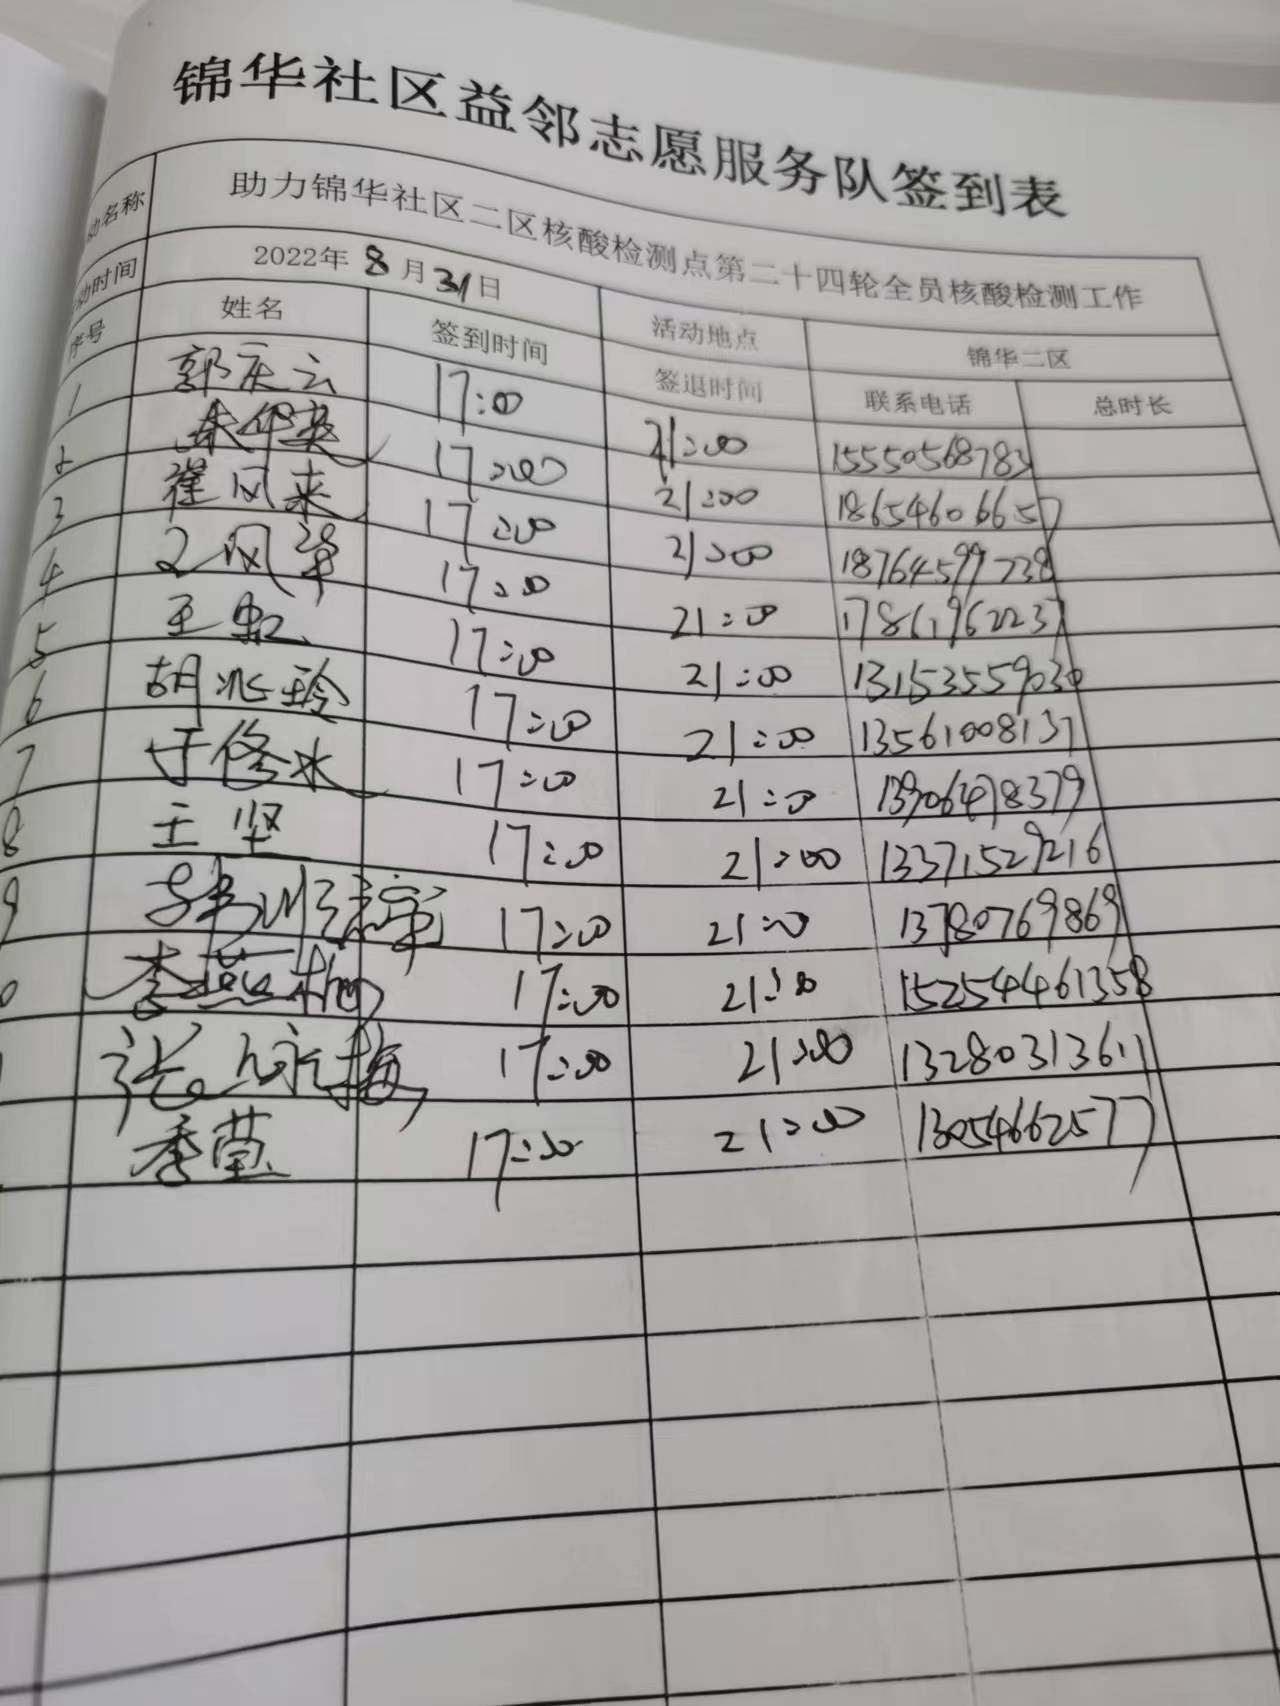 锦华社区益邻志愿服务队签到表
动名称 助力锦华社区二区核酸检测点第二十四轮全员核酸检测工作
动时间 2022年8月31日 活动地点 锦华二区
序号 姓名 签到时间 签退时间 联系电话 总时长
1 郭庆云 17:00 21:00 15550568783
2 朱华英 17:00 21:00 18654606657
3 崔风来 17:00 21:00 18764599738
4 风翠 17:00 21:00 17861962237
5 王虹 17:00 21:00 13153559030
6 胡兆玲 17:00 21:00 13561008137
7 于修水 17:00 21:00 13906478379
8 王坚 17:00 21:00 13371529216
9 17:00 21:00 13780769869
0 李燕梅 17:00 21:00 15254461358
张永梅 17:00 21:00 13280313611
季莹 17:00 21:00 13054662577